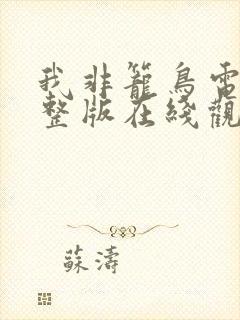 我非籠鳥電
整版在綫觀
蘇濤